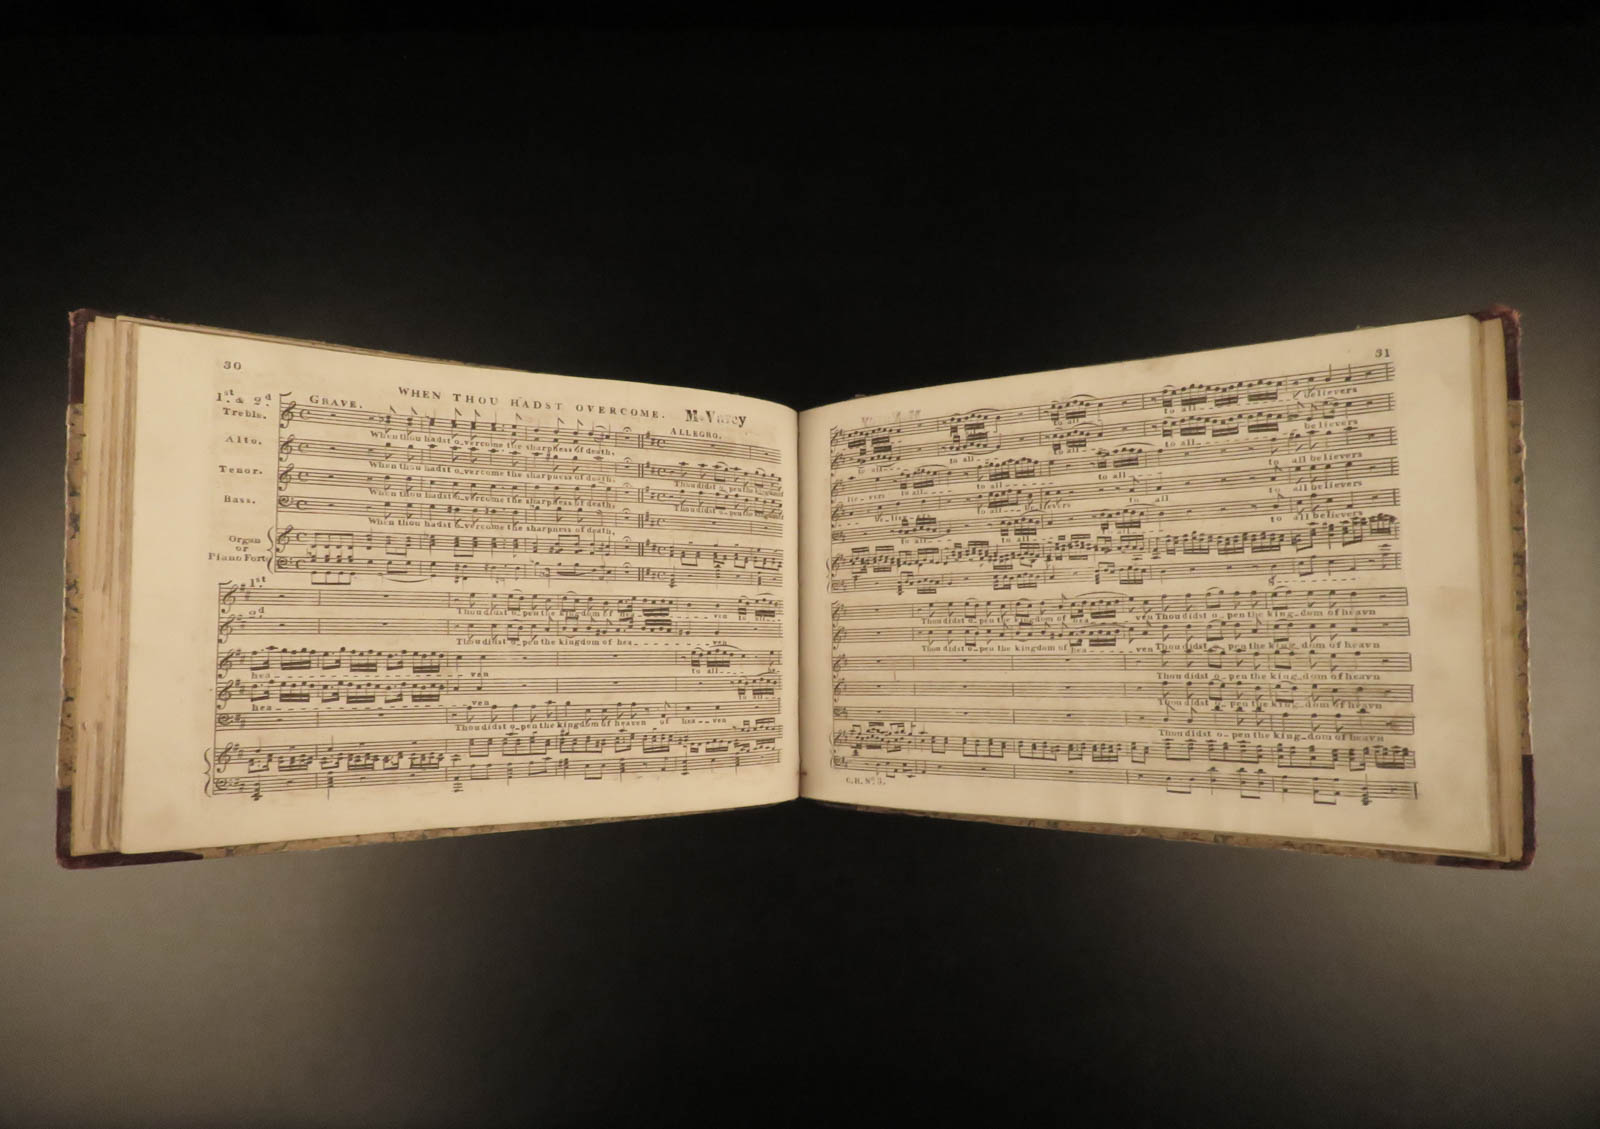 30
WHEN THOU HADST OVERCOME.
GRAVE.
ALLEGRO.
1st & 2d
Treble.
When thou hadst o_vercome the sharpness of death,
Alto.
When thou hadst o_vercome the sharpness of death,
Thou didst o_pen the
Tenor.
When thou hadst o_vercome the sharpness of death,
Thou didst o_pen the
Bass.
When thou hadst o_vercome the sharpness of death,
Organ
or
Piano Forte
1st
Thou didst o_pen the kingdom of hea ven to all
2d
Thou didst o_pen the kingdom of hea ven
hea ven to all be
hea ven to all
Thou didst o_pen the kingdom of heaven of hea_ven
31
to all believers
to all to all believers
to all to all
lie_vers to all to all to all to all believers
be_lie to all believers to all to all believers
to all to all to all believers
Thou didst o_pen the kingdom of hea ven Thou didst o_pen the king_dom of heavn
Thou didst o_pen the kingdom of hea ven Thou didst o_pen the king_dom of heavn
Thou didst o_pen the king_dom of heavn
Thou didst o_pen the king_dom of heavn
Thou didst o_pen the king_dom of heavn
C.H. No. 3.